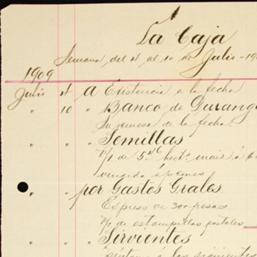 La Caja
Semana del 4 al 10 de Julio - 190
1909
Julio 4 a Existencia a la fecha
" 10 " Banco de Durango
Su remesa de la fecha
" " " Semillas
V/. de 5 hect. maiz á
vendida á
" " por Gastos Grales
Expreso de 300 pesos
V/. de estampillas postales
" " " Sirvientes